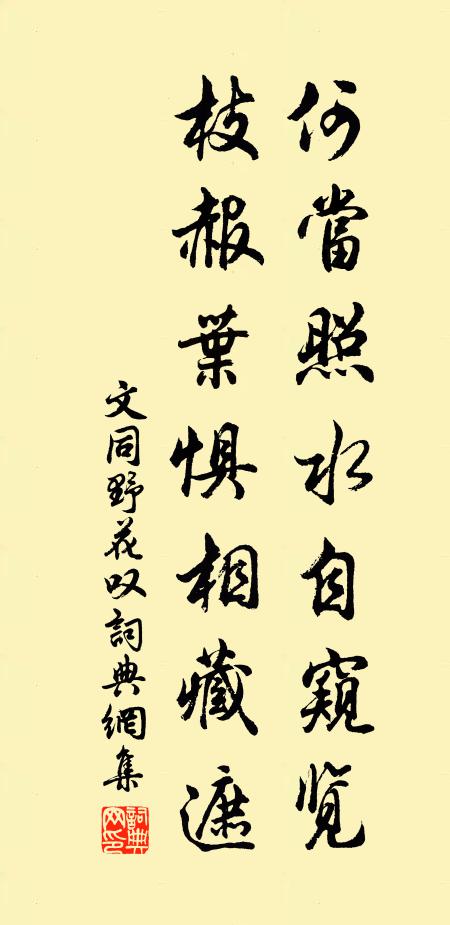 何當照水自窺览
枝赧葉惧相藏遮
文同野花叹詞典網集
詞典网印